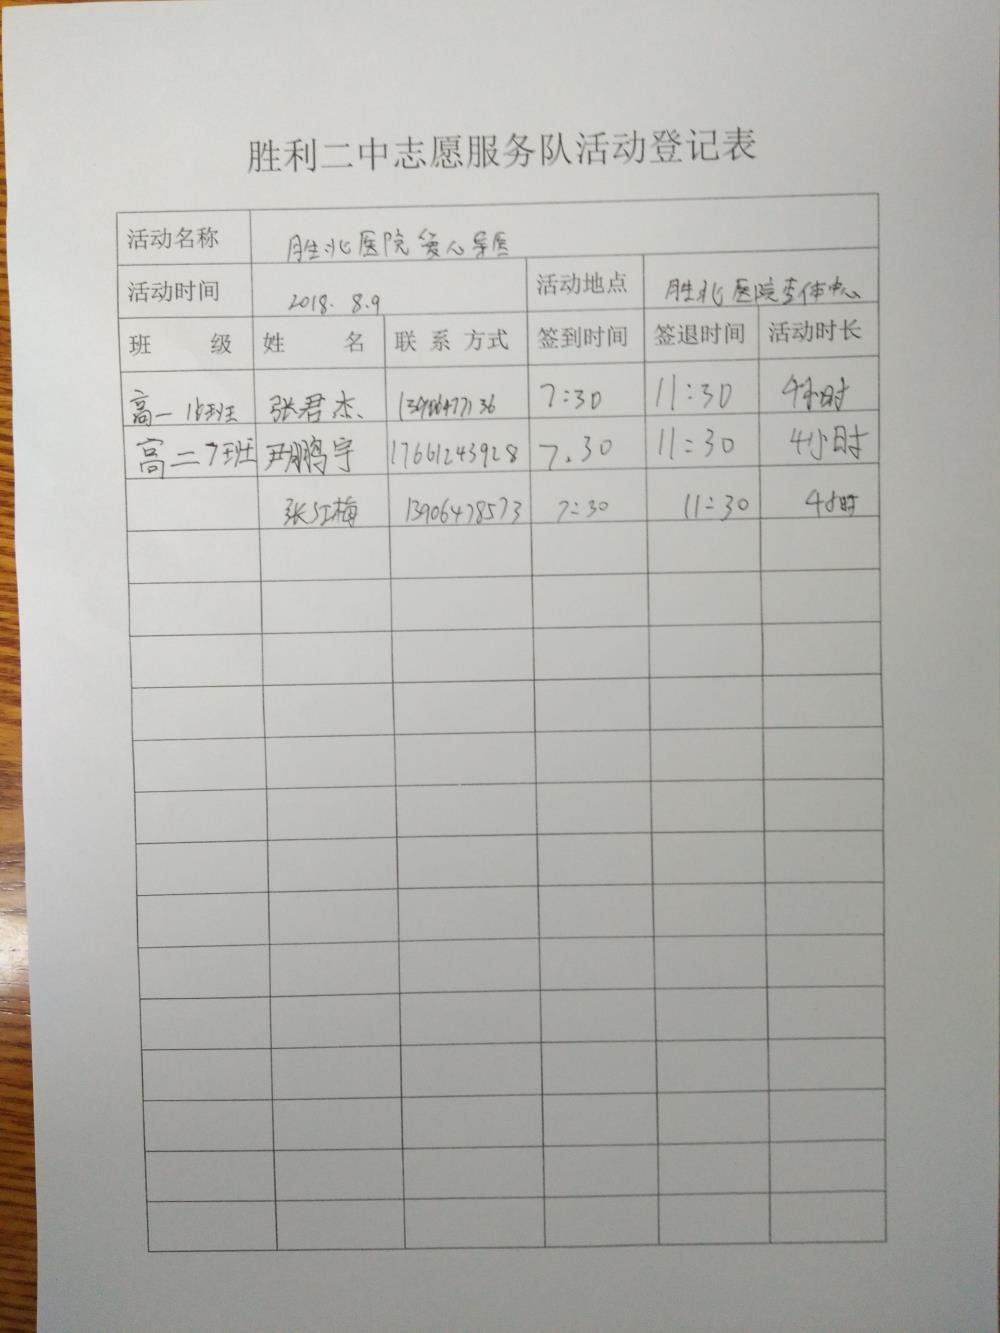 胜利二中志愿服务队活动登记表
活动名称 胜北医院爱心导医
活动时间 2018. 8.9 活动地点 胜北医院查体中心
班 级 姓 名 联 系 方式 签到时间 签退时间 活动时长
高一 班 张君杰 7:30 11:30 4小时
高二7班 尹鹏宇 17661243928 7.30 11:30 4小时
张红梅 13906478573 7:30 11:30 4小时